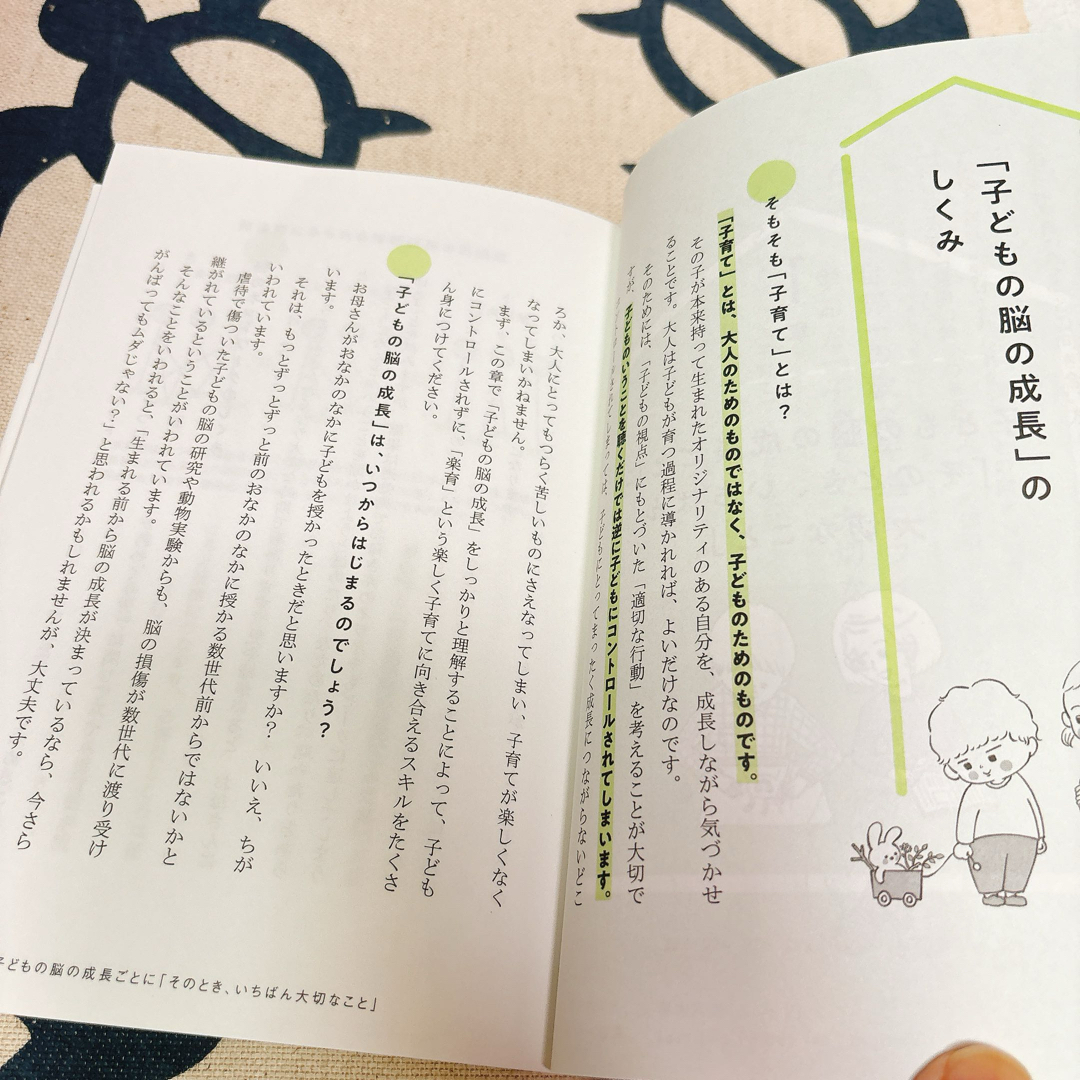 「子どもの脳の成長」の
しくみ
そもそも「子育て」とは？
「子育て」とは、大人のためのものではなく、子どものためのものです。
その子が本来持って生まれたオリジナリティのある自分を、成長しながら気づかせ
ることです。大人は子どもが育つ過程に導かれれば、よいだけなのです。
そのためには、「子どもの視点」にもとづいた「適切な行動」を考えることが大切で
すが、子どものいうことを聴くだけでは逆に子どもにコントロールされてしまいます。
しまっては、子どもにとってまったく成長につながらないどこ
ろか、大人にとってもつらく苦しいものにさえなってしまい、子育てが楽しくなく
なってしまいかねません。
まず、この章で「子どもの脳の成長」をしっかりと理解することによって、子ども
にコントロールされずに、「楽育」という楽しく子育てに向き合えるスキルをたくさ
ん身につけてください。
「子どもの脳の成長」は、いつからはじまるのでしょう？
お母さんがおなかのなかに子どもを授かったときだと思いますか？　いいえ、ちが
います。
それは、もっとずっとずっと前のおなかのなかに授かる数世代前からではないかと
いわれています。
虐待で傷ついた子どもの脳の研究や動物実験からも、脳の損傷が数世代に渡り受け
継がれているということがいわれています。
そんなことをいわれると、「生まれる前から脳の成長が決まっているなら、今さら
がんばってもムダじゃない？」と思われるかもしれませんが、大丈夫です。
子どもの脳の成長ごとに「そのとき、いちばん大切なこと」